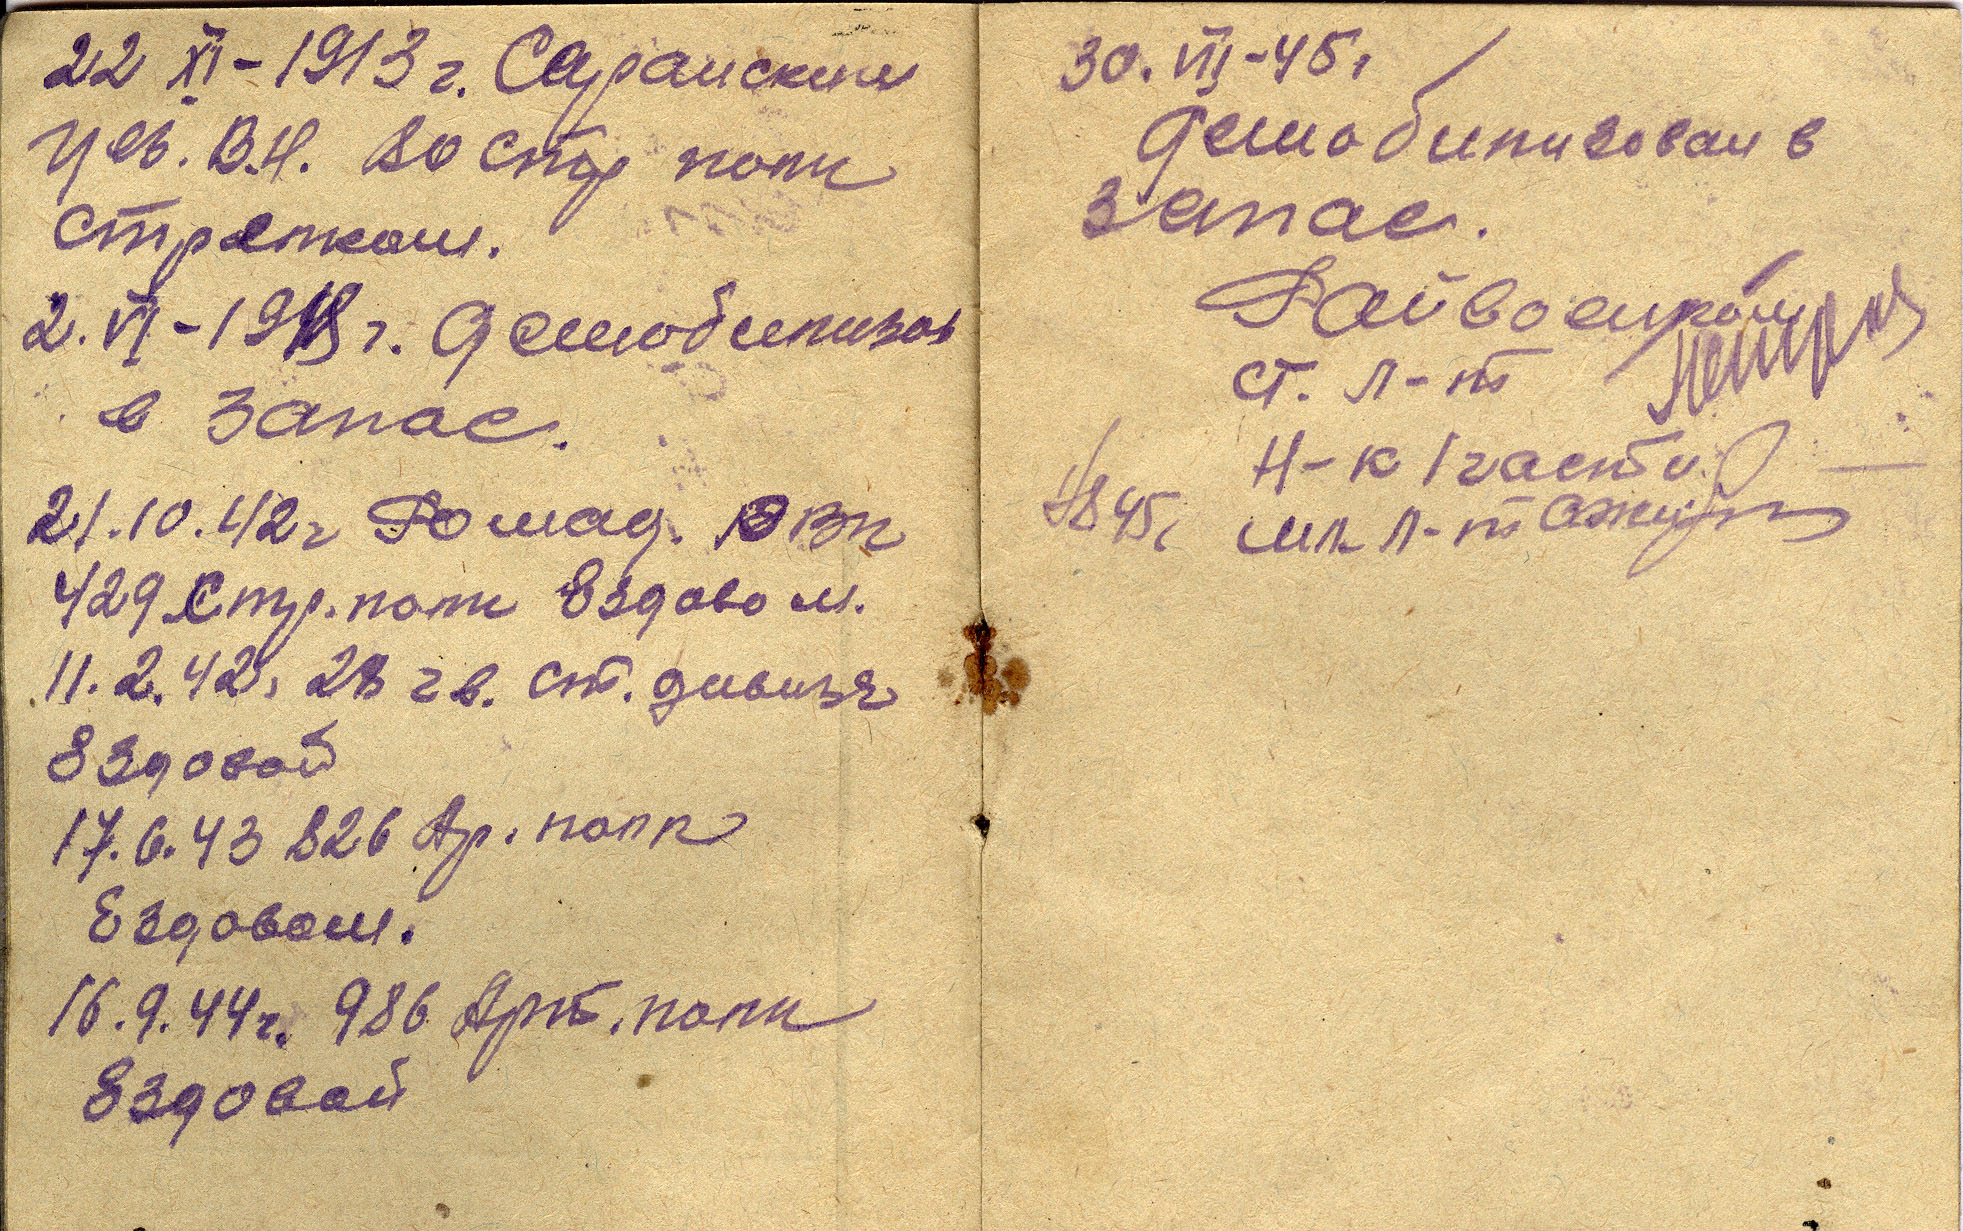 22 XI-1913 г. Саранским
Уев. В.Н. 80 стр полк
стрелком.
2. VI-1918 г. демобилизов
в запас.
21.10.42г Ромад. РВК
429 стр. полк Ездовом.
11.2.42г 28 гв. ст. дивизя
Ездовой
17.6.43 826 Ар. полк
Ездовом.
16.9.44г. 986 Арт. полк
Ездовой
30. VIII-45г
демобилизован в
запас.
Райвоенком
ст. л-т
Н-к 1 части
45г мл. л-т